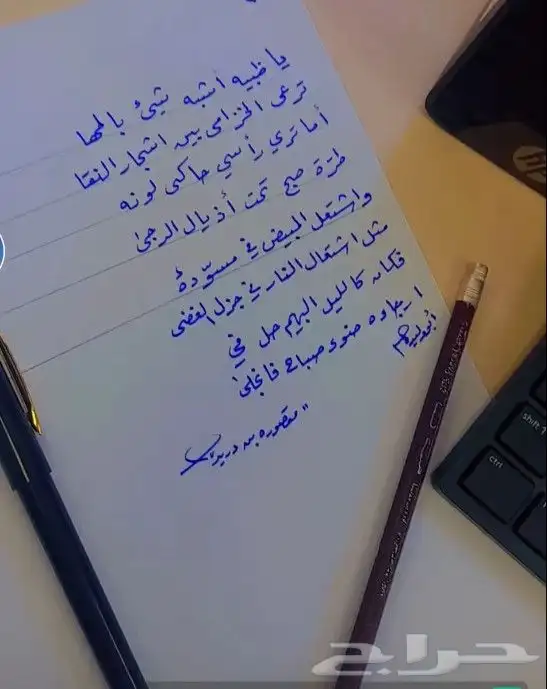 يا ظبيه أشبه شيئ بالمها
ترعى الخزامى بين اشجار النقا
أما تري رأسي حاكى لونه
طرة صبح تحت أذيال الدجى
واشتعل المبيض في مسودة
مثل اشتعال النار في جزل الغضى
فكان كالليل البهيم حل في
ارجاءه ضوء صباح فانجلى
"مقصوره بن دريد"
hp
shift
ctrl
حراج